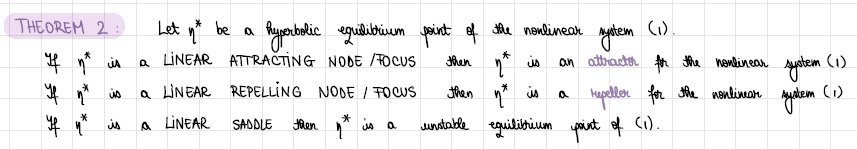 THEOREM 2: Let η* be a hyperbolic equilibrium point of the nonlinear system (1).
If η* is a LINEAR ATTRACTING NODE/FOCUS then η* is an attractor for the nonlinear system (1)
If η* is a LINEAR REPELLING NODE/FOCUS then η* is a repeller for the nonlinear system (1)
If η* is a LINEAR SADDLE then η* is a unstable equilibrium point of (1).